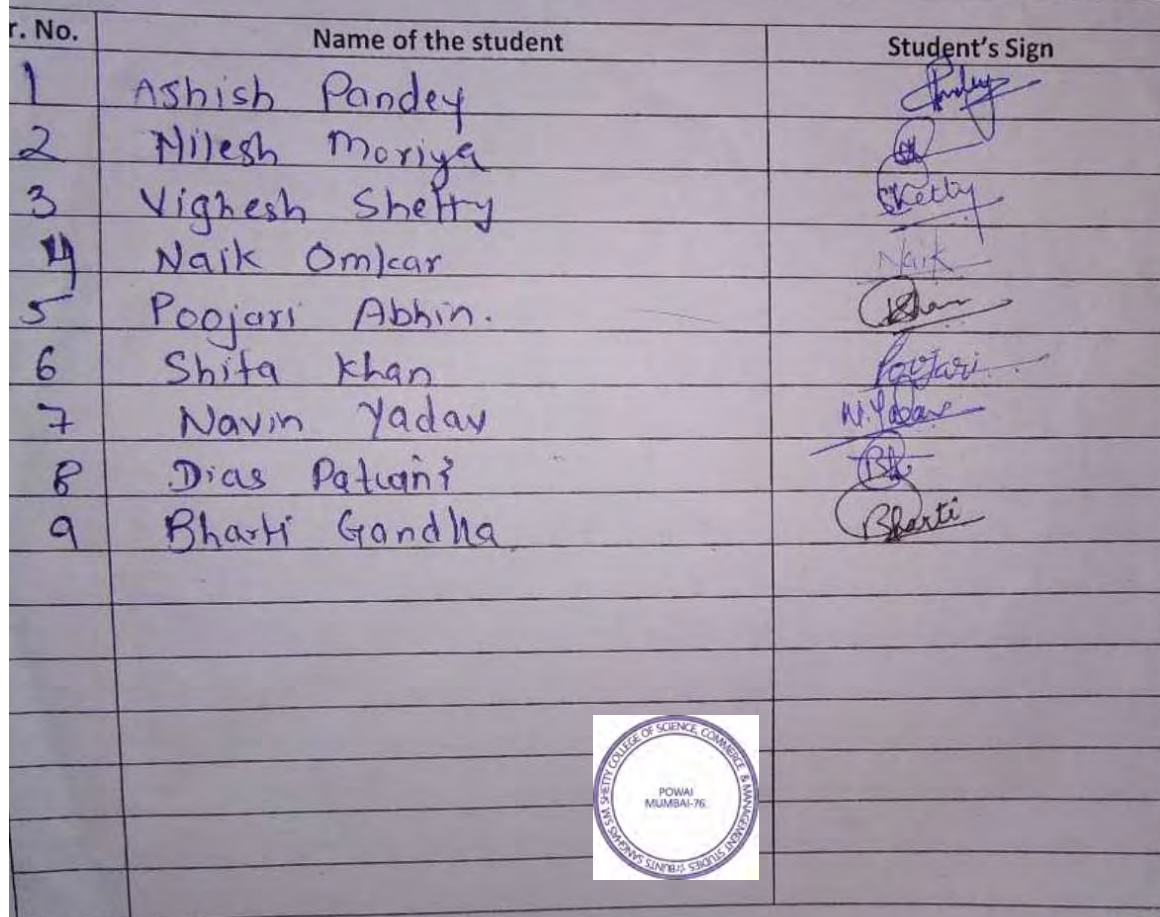 r. No. Name of the student Student's Sign
1 Ashish Pandey Pandey
2 Nilesh Moriya
3 Vighesh Shetty Shetty
4 Naik Omkar Naik
5 Poojari Abhin. Khan
6 Shifa Khan Poojari
7 Navin Yadav N. Yadav
8 Dias
9 Bharti Gandha Bharti
BUNTS SANGHA'S S.M SHETTY COLLEGE OF SCIENCE, COMMERCE & MANAGEMENT STUDIES
POWAI
MUMBAI-76.